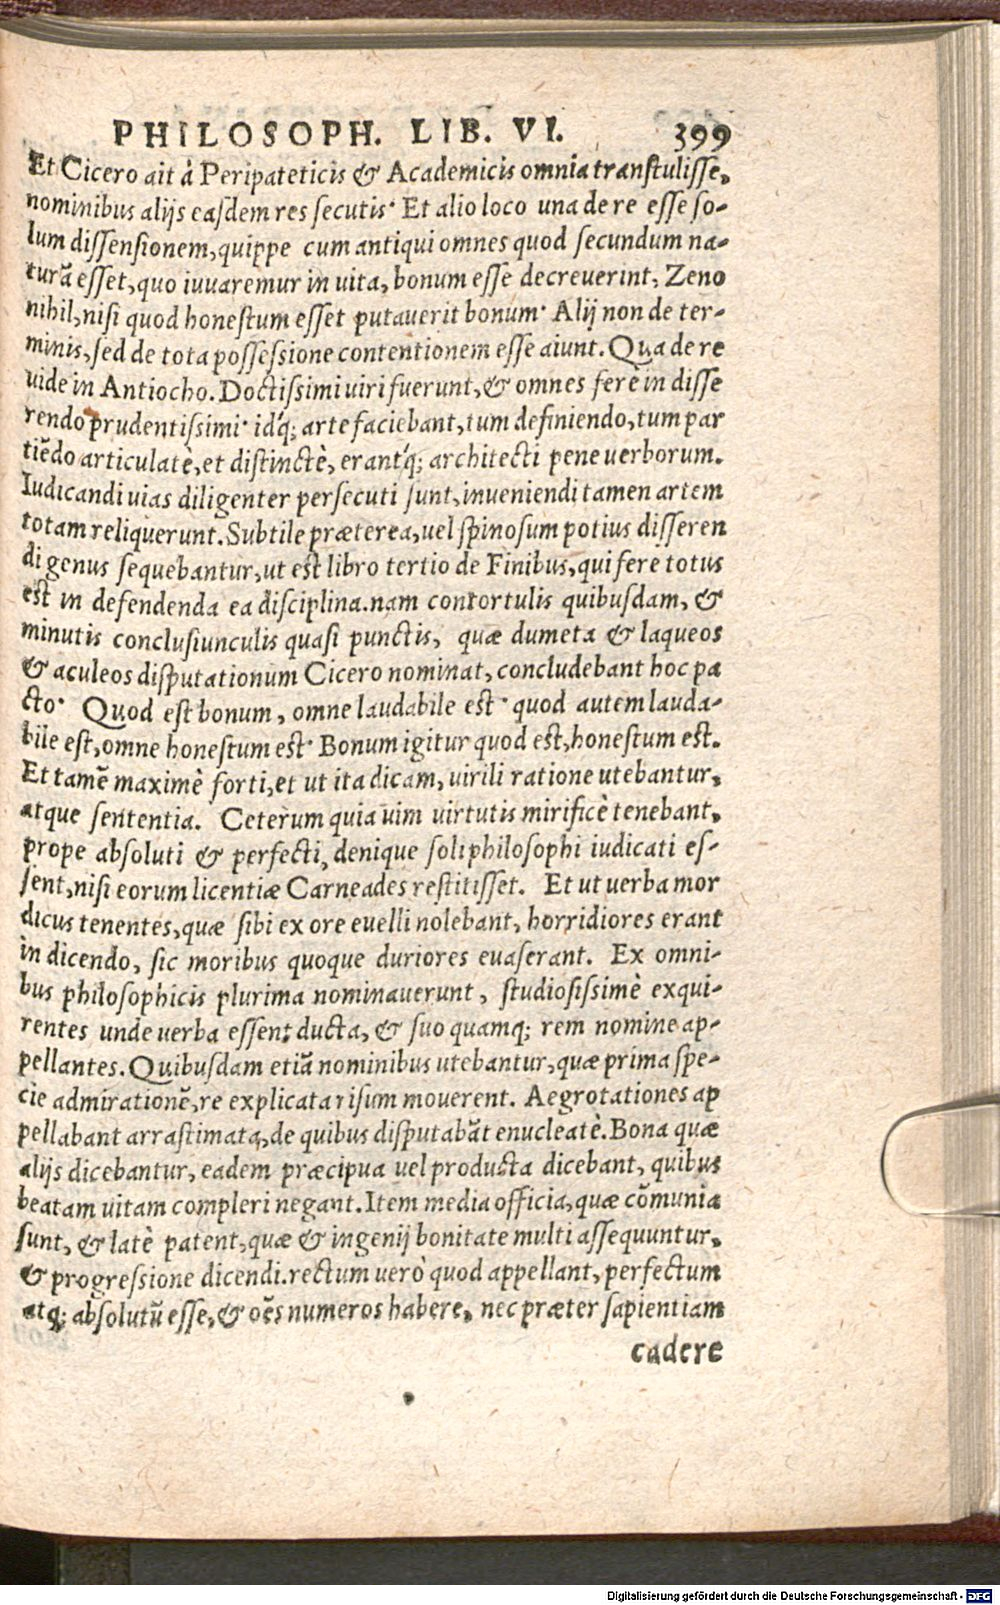 PHILOSOPH. LIB. VI. 399
Et Cicero ait à Peripateticis & Academicis omnia transtulisse,
nominibus alijs easdem res secutis· Et alio loco una de re esse so-
lum dissensionem, quippe cum antiqui omnes quod secundum na-
turā esset, quo iuvaremur in uita, bonum esse decreverint, Zeno
nihil, nisi quod honestum esset putaverit bonum· Alij non de ter-
minis, sed de tota possessione contentionem esse aiunt. Qua de re
uide in Antiocho. Doctissimi uiri fuerunt, & omnes ferè in disse
rendo prudentissimi· idq́; arte faciebant, tum definiendo, tum par
tiēdo articulatè, et distinctè, erantq́; architecti pene uerborum.
Iudicandi uias diligenter persecuti sunt, inueniendi tamen artem
totam reliquerunt. Subtile præterea, uel spinosum potius disseren
di genus sequebantur, ut est libro tertio de Finibus, qui fere totus
est in defendenda ea disciplina. nam contortulis quibusdam, &
minutis conclusiunculis quasi punctis, quæ dumeta & laqueos
& aculeos disputationum Cicero nominat, concludebant hoc pa
cto· Quod est bonum, omne laudabile est· quod autem lauda-
bile est, omne honestum est· Bonum igitur quod est, honestum est.
Et tamē maximè forti, et ut ita dicam, uirili ratione utebantur,
atque sententia. Ceterum quia uim uirtutis mirificè tenebant,
prope absoluti & perfecti, denique soli philosophi iudicati es-
sent, nisi eorum licentiæ Carneades restitisset. Et ut uerba mor
dicus tenentes, quæ sibi ex ore euelli nolebant, horridiores erant
in dicendo, sic moribus quoque duriores euaserant. Ex omni-
bus philosophicis plurima nominaverunt, studiosissimè exqui-
rentes unde uerba essent ducta, & suo quamq; rem nomine ap-
pellantes. Quibusdam etiā nominibus utebantur, quæ prima spe-
cie admirationē, re explicata risum mouerent. Aegrotationes ap
pellabant arrastimata, de quibus disputabāt enucleatè. Bona quæ
alijs dicebantur, eadem præcipua uel producta dicebant, quibus
beatam uitam compleri negant. Item media officia, quæ cōmunia
sunt, & latè patent, quæ & ingenij bonitate multi assequuntur,
& progressione dicendi. rectum uerò quod appellant, perfectum
atq; absolutū esse, & oēs numeros habere, nec præter sapientiam
cadere
Digitalisierung gefördert durch die Deutsche Forschungsgemeinschaft - DFG